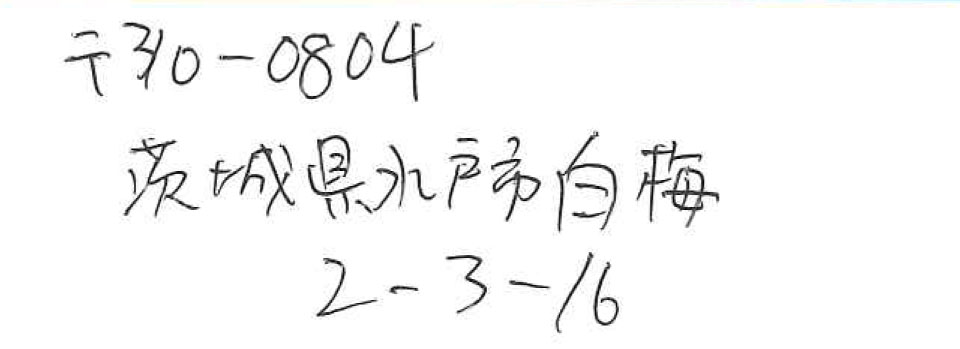 〒310-0804
茨城県水戸市白梅
2-3-16